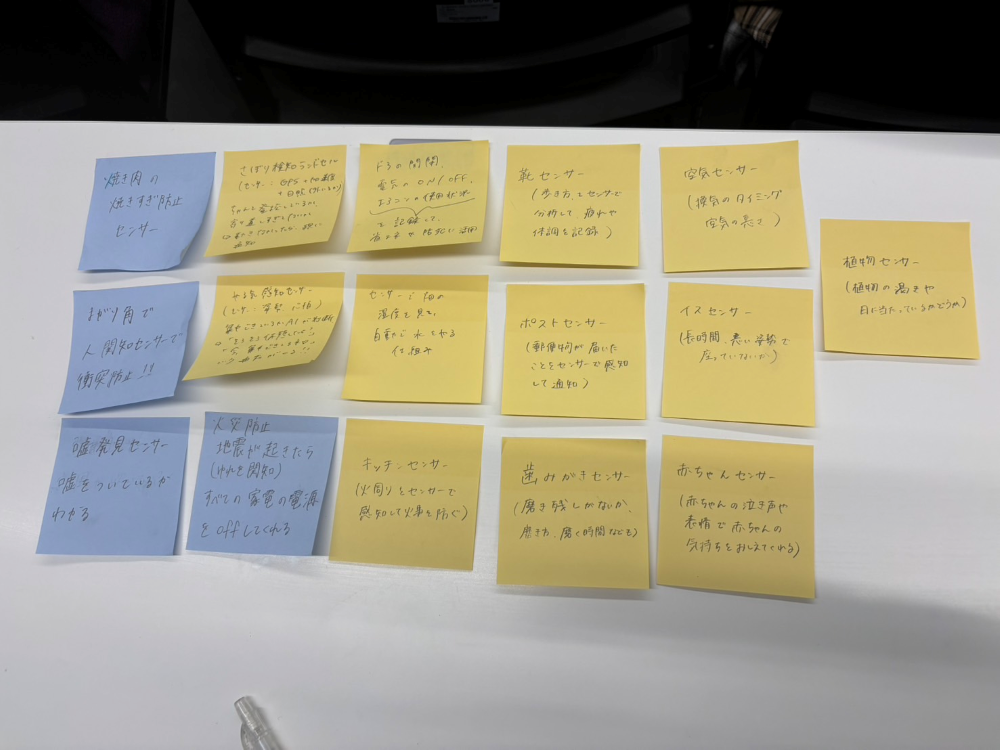 焼き肉の
焼きすぎ防止
センサー
さぼり検知ランドセル
(センサー：GPS
ちゃんと登校しているか、
ドアの開閉、
電気のON/OFF、
の使用状況
を記録して、
省エネや防犯に活用
靴センサー
(歩き方をセンサで
分析して疲れや
体調を記録)
空気センサー
(換気のタイミング
空気の良さ)
植物センサー
(植物の渇きや
日に当たっているかどうか)
まがり角で
人間知センサーで
衝突防止!!
やる気感知センサー
センサーで畑の
湿度を見て、
自動で水をやる
仕組み
ポストセンサー
(郵便物が届いた
ことをセンサーで感知
して通知)
イスセンサー
(長時間、悪い姿勢で
座っていないか)
嘘発見センサー
嘘をついているか
わかる
火災防止
地震が起きたら
(ゆれを関知)
すべての家電の電源
をoffしてくれる
キッチンセンサー
(火周りをセンサーで
感知して火事を防ぐ)
歯みがきセンサー
(磨き残しがないか、
磨き方、磨く時間なども)
赤ちゃんセンサー
(赤ちゃんの泣き声や
表情で赤ちゃんの
気持ちをおしえてくれる)